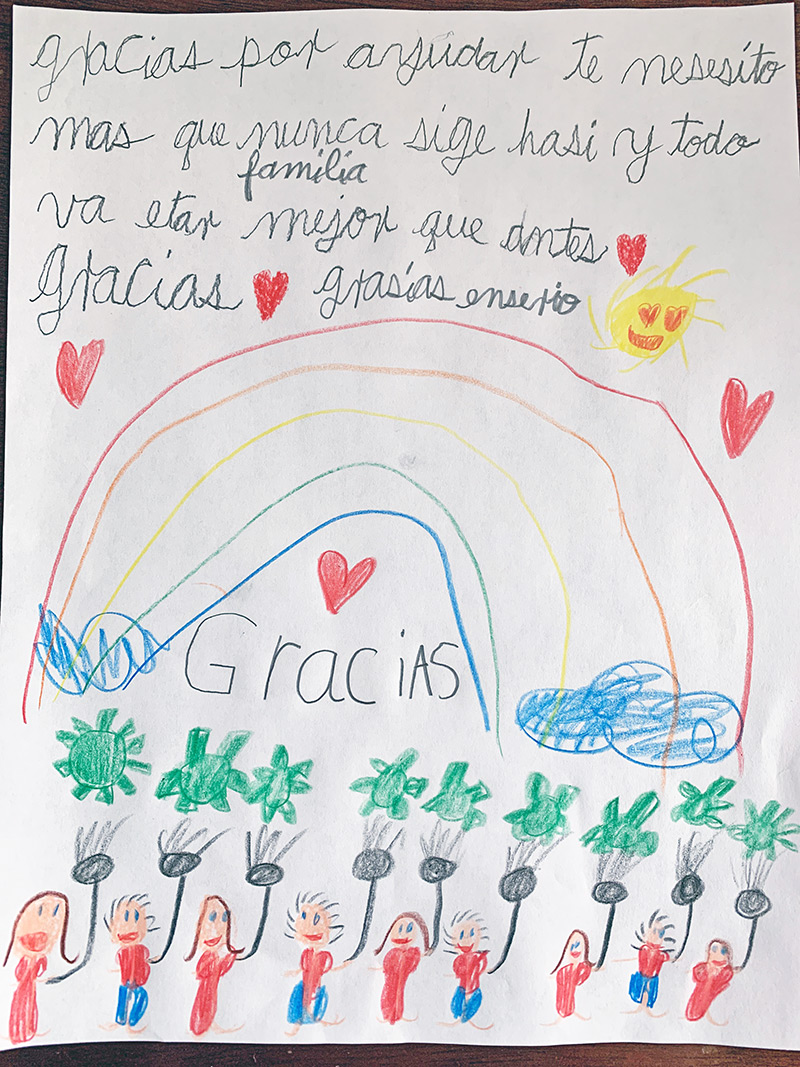 gracias por ayudar te nesesito
mas que nunca sige hasi y todo
familia
va etar mejor que antes
Gracias grasias enserio
GraciAS